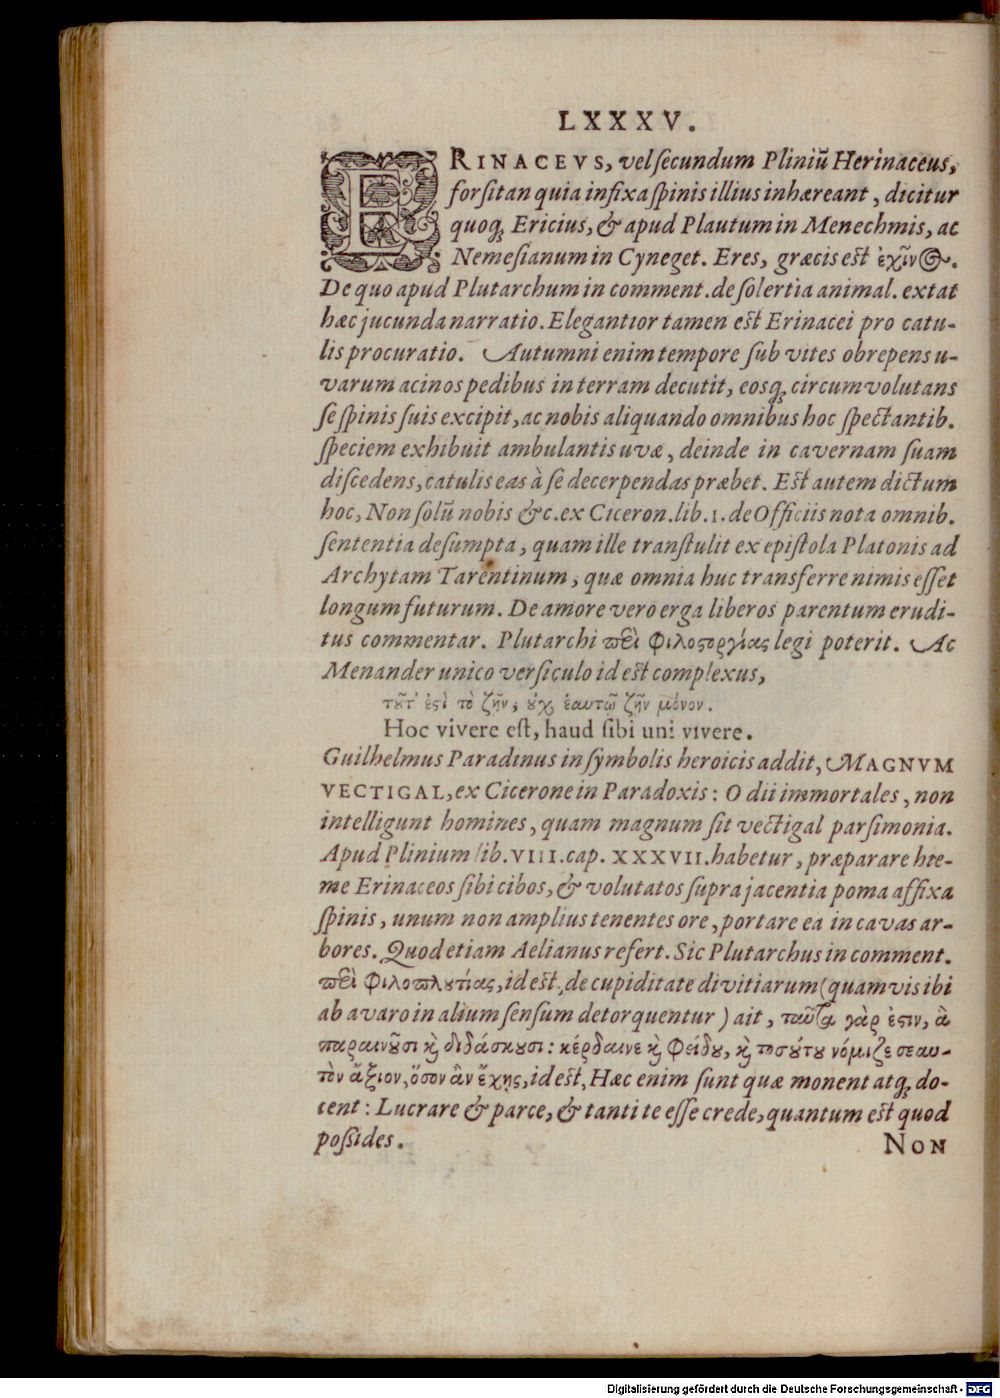 LXXXV.
ERINACEVS, vel ſecundum Pliniũ Herinaceus,
forſitan quia infixa ſpinis illius inhæreant, dicitur
quoq; Ericius, & apud Plautum in Menechmis, ac
Nemeſianum in Cyneget. Eres, græcis est ἐχῖνος.
De quo apud Plutarchum in comment. de ſolertia animal. extat
hæc jucunda narratio. Elegantior tamen est Erinacei pro catu-
lis procuratio. Autumni enim tempore ſub vites obrepens u-
varum acinos pedibus in terram decutit, eosq; circumvolutans
ſe ſpinis ſuis excipit, ac nobis aliquando omnibus hoc ſpectantib.
ſpeciem exhibuit ambulantis uvæ, deinde in cavernam ſuam
diſcedens, catulis eas à ſe decerpendas præbet. Est autem dictum
hoc, Non ſolũ nobis &c. ex Ciceron. lib. 1. de Officiis nota omnib.
ſententia deſumpta, quam ille tranſtulit ex epiſtola Platonis ad
Archytam Tarentinum, quæ omnia huc transferre nimis eſſet
longum futurum. De amore vero erga liberos parentum erudi-
tus commentar. Plutarchi περὶ φιλοστοργίας legi poterit. Ac
Menander unico verſiculo id est complexus,
τοῦτ' ἐστὶ τὸ ζῆν, οὐχ ἑαυτῷ ζῆν μόνον.
Hoc vivere eſt, haud ſibi uni vivere.
Guilhelmus Paradinus in ſymbolis heroicis addit, MAGNVM
VECTIGAL, ex Cicerone in Paradoxis: O dii immortales, non
intelligunt homines, quam magnum ſit vectigal parſimonia.
Apud Plinium lib. VIII. cap. XXXVII. habetur, præparare hie-
me Erinaceos ſibi cibos, & volutatos ſupra jacentia poma affixa
ſpinis, unum non amplius tenentes ore, portare ea in cavas ar-
bores. Quod etiam Aelianus refert. Sic Plutarchus in comment.
περὶ φιλοπλουτίας, id est, de cupiditate divitiarum (quamvis ibi
ab avaro in alium ſenſum detorquentur) ait, ταῦτα γάρ ἐστιν, ἃ
παραινοῦσι καὶ διδάσκουσι: κέρδαινε καὶ φείδου, καὶ τοσούτου νόμιζε σεαυ-
τὸν ἄξιον, ὅσον ἂν ἔχῃς, id est, Hæc enim ſunt quæ monent atq; do-
cent: Lucrare & parce, & tanti te eſſe crede, quantum est quod
poſſides.
NON
Digitalisierung gefördert durch die Deutsche Forschungsgemeinschaft - DFG